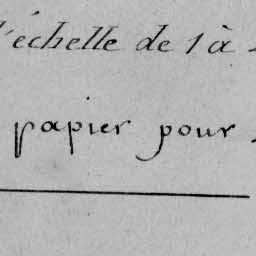 l'échelle de 1 à
papier pour